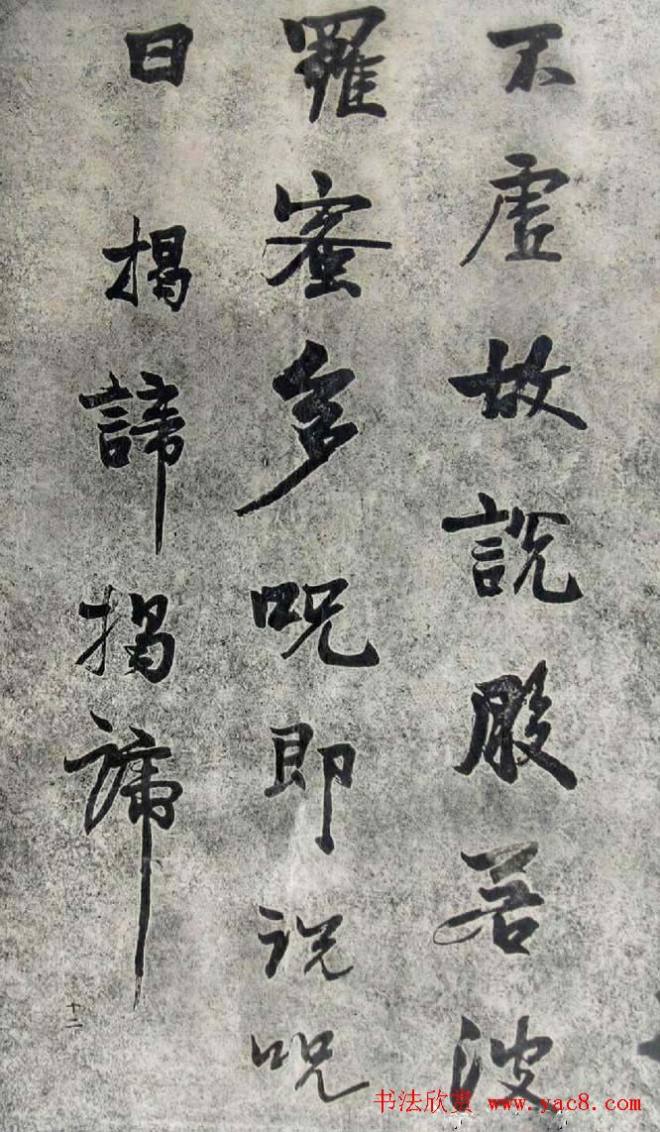 不虛故說般若波
羅蜜多呪即説呪
曰揭諦揭諦
十二
书法欣赏 www.yac8.com